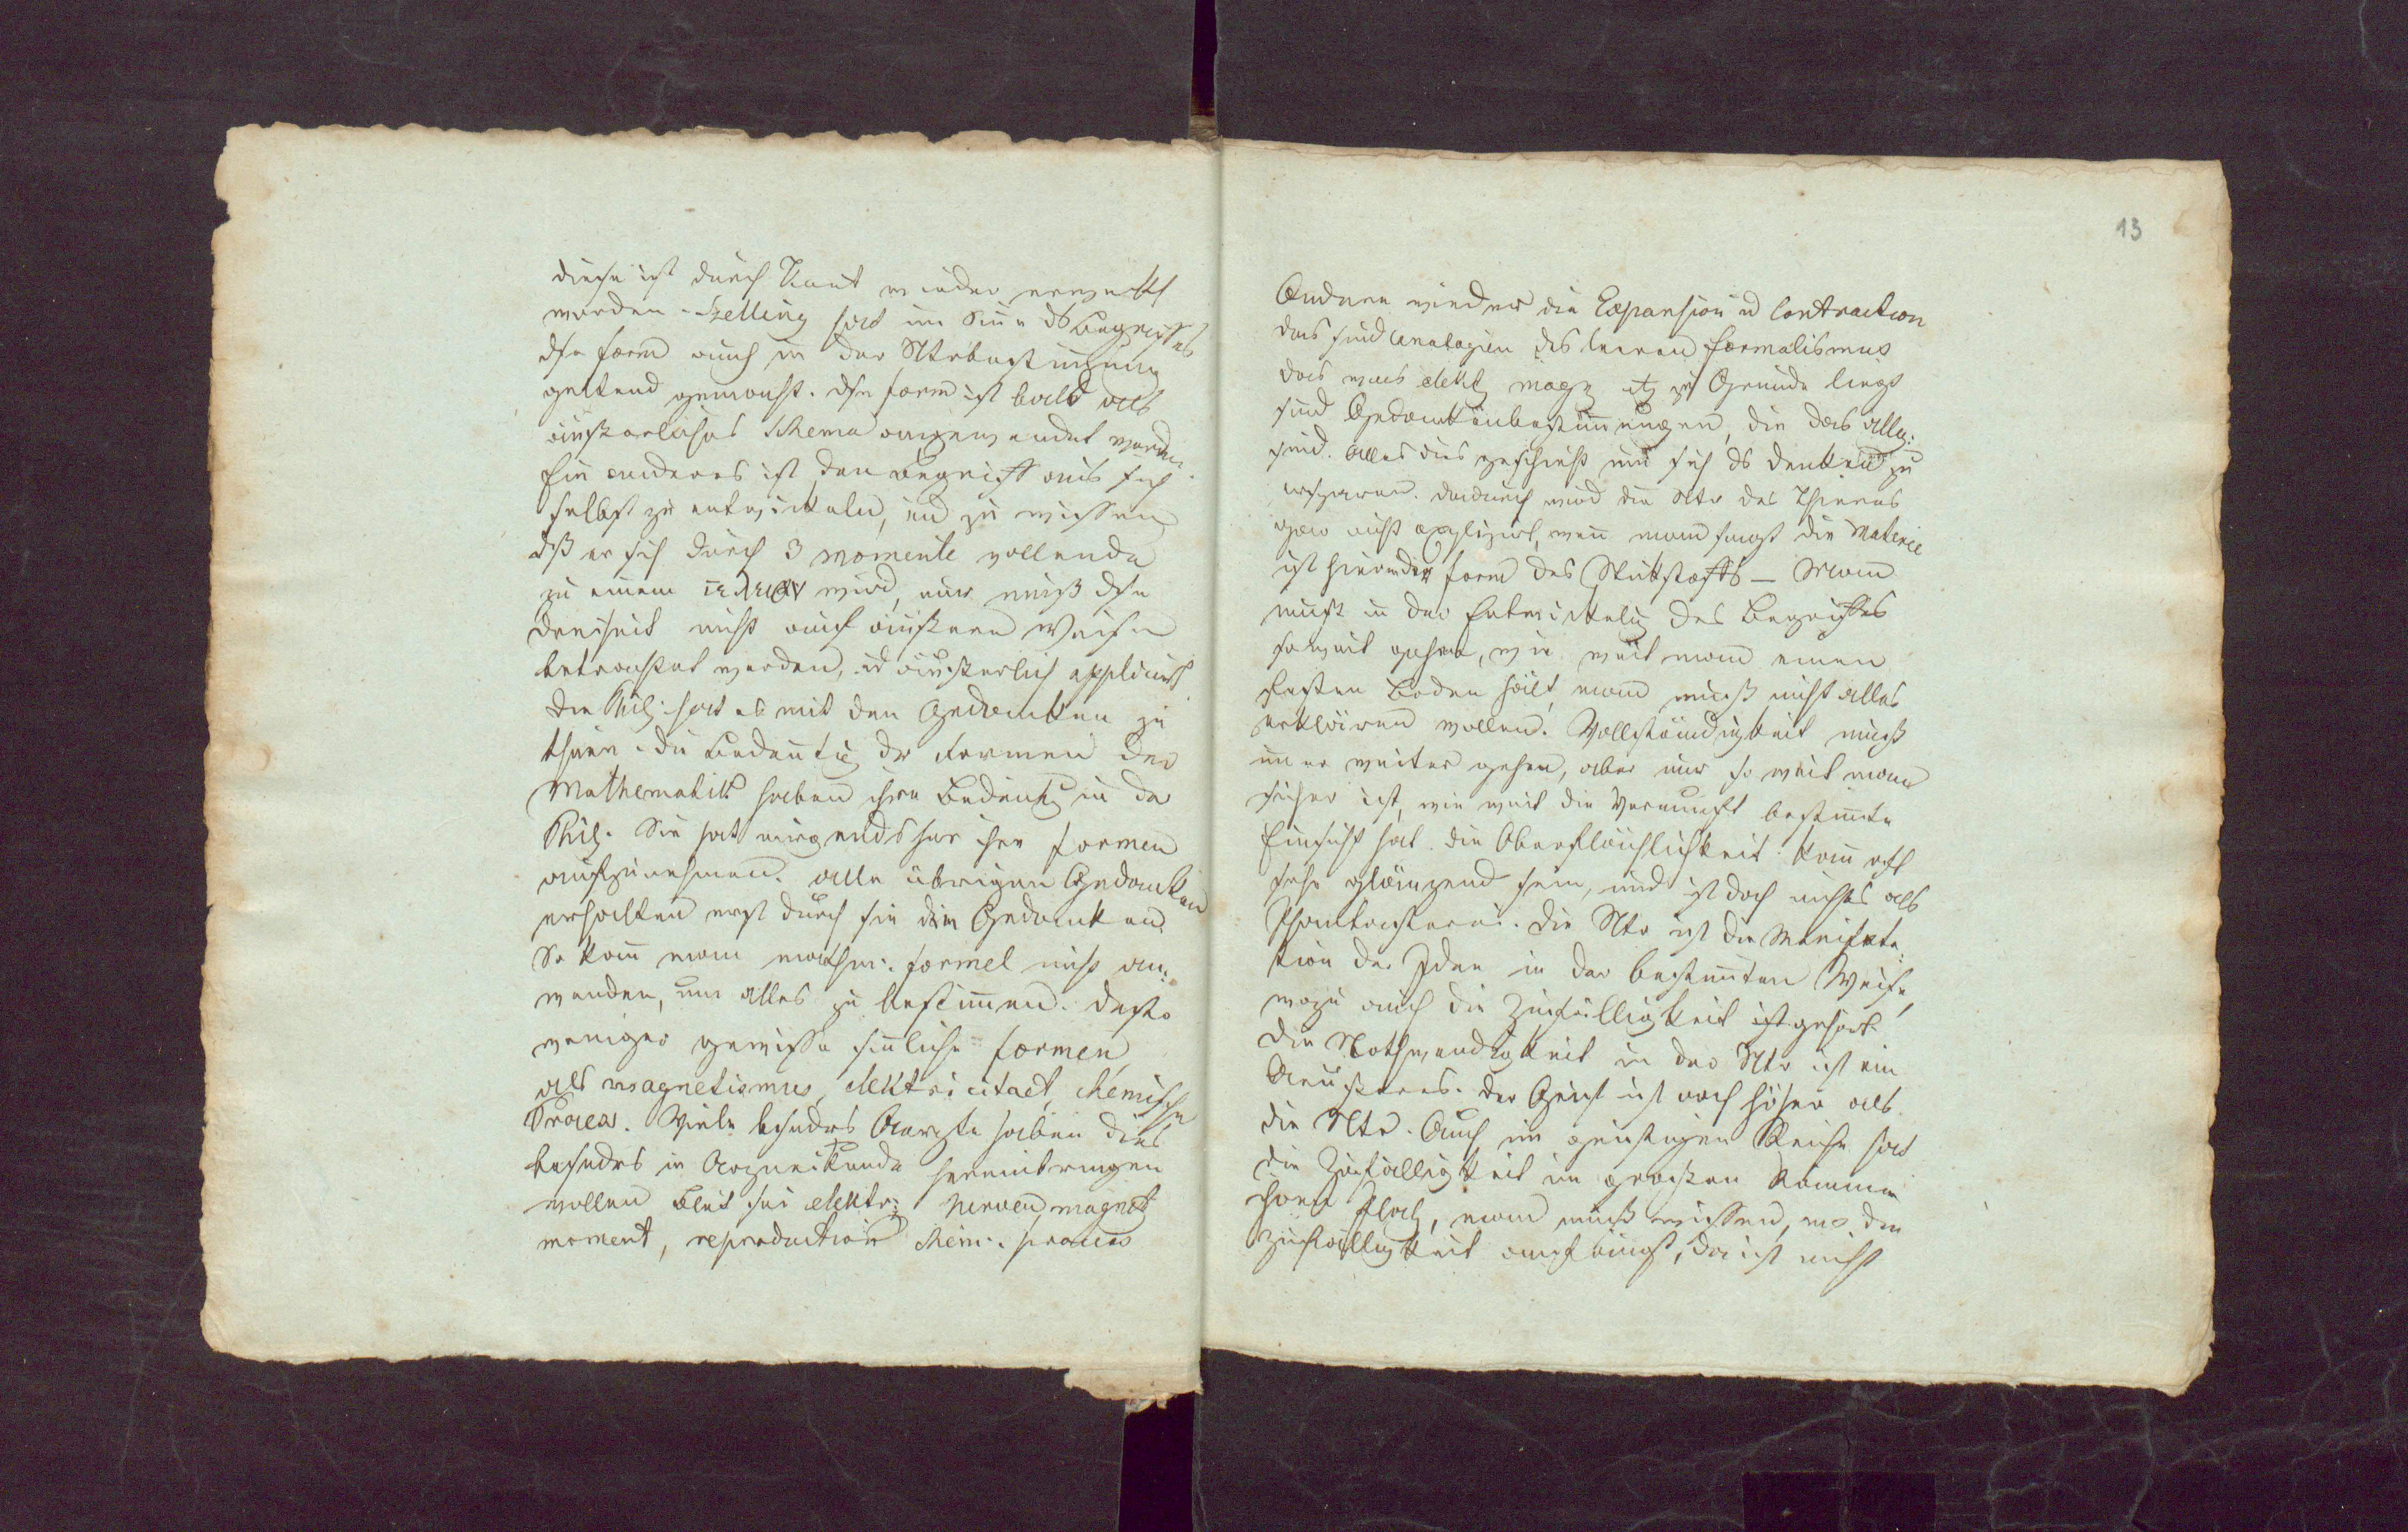 diese ist durch Kant wieder erweckt
worden. Schelling hat im Sinne ds Begriffes
dse Form auch in der Ntrbestimmung
geltend gemacht. dse Form ist bald als
äusserliches Schema angewendet worden.
Ein anderes ist den Begriff aus sich
selbst zu entwickeln, und zu wissen
dß er sich durch 3 momente vollende
zu einem wird, nur muß dse
Dreiheit nicht auf äussere Weise
betrachtet werden, ud äusserlich applicirt
Die Phil: hat es mit den Gedanken zu
thun. die Bedeutug der Formen der
Mathematik haben ihre Bedeutg in der
Phil. Sie hat nirgends her ihre Formen
aufzunehmen. alle übrigen Gedanken
erhalten erst durch sie den Gedanken
So kann man mathem: Formel nicht an:
wenden, um alles zu bestimmen. Desto
weniger gewisse sinnliche Formen,
als magnetismus, elektricitaet, chemische
Process. Viele besonders Aerzte haben dies
besonders in Arzneikunde hereinbringen
wollen Blut sei elektr: Nerven, magnet
moment, reproduction chem: process
13
Andere wieder die Expansion ud Contraction
das sind Analogien des leeren Formalismus
das was elekt magn etz zu Grunde liegt
sind Gedankenbestimmungen, die das allg:
sind. alles dies geschieht um sich ds denken zu
ersparen. dadurch wird die Ntr des Thieres
gar nicht explizirt, wenn man sagt die Materie
ist hier in der Form des Stickstoffs — Man
muß in der Entwickelug des Begriffes
so weit gehen, wie weit man einen
festen Boden hält, man muß nicht alles
erklären wollen. Vollständigkeit muß
immer weiter gehen, aber nur so weit man
sicher ist, wie weit die Vernunft bestimmte
Einsicht hat. die Oberflächlichkeit kann oft
sehr glänzend sein, und ist doch nichts als
Phantasterei. Die Ntr ist die Manifesta:
tion der Idee in der bestimmten Weise,
wozu auch die Zufälligkeit ist gehört
Die Nothwendigkeit in der Ntr ist ein
Aeusseres. der Geist ist noch höher als
die Ntr. Auch im geistigen Reiche hat
die Zufälligkeit im grossen Raume
ihren Platz, man muß wissen, wo die
Zufälligkeit anfängt, da ist nicht